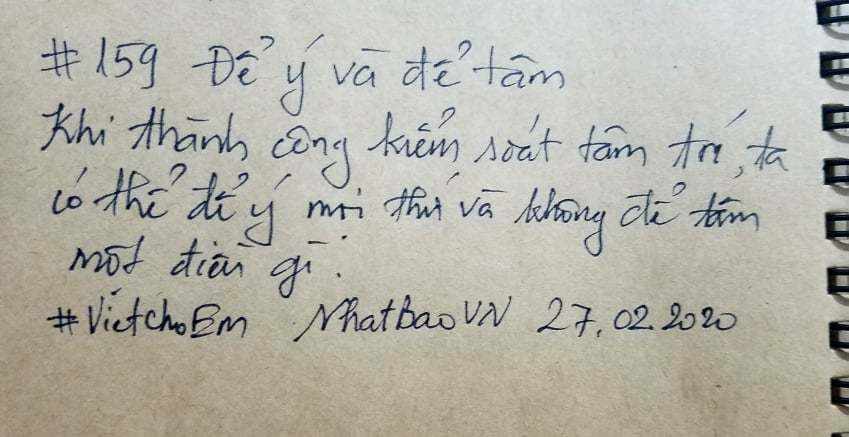 #159 Để ý và để tâm
Khi thành công kiểm soát tâm trí, ta
có thể để ý mọi thứ và không để tâm
một điều gì.
#VietchoEm NhatBaoVN 27.02.2020